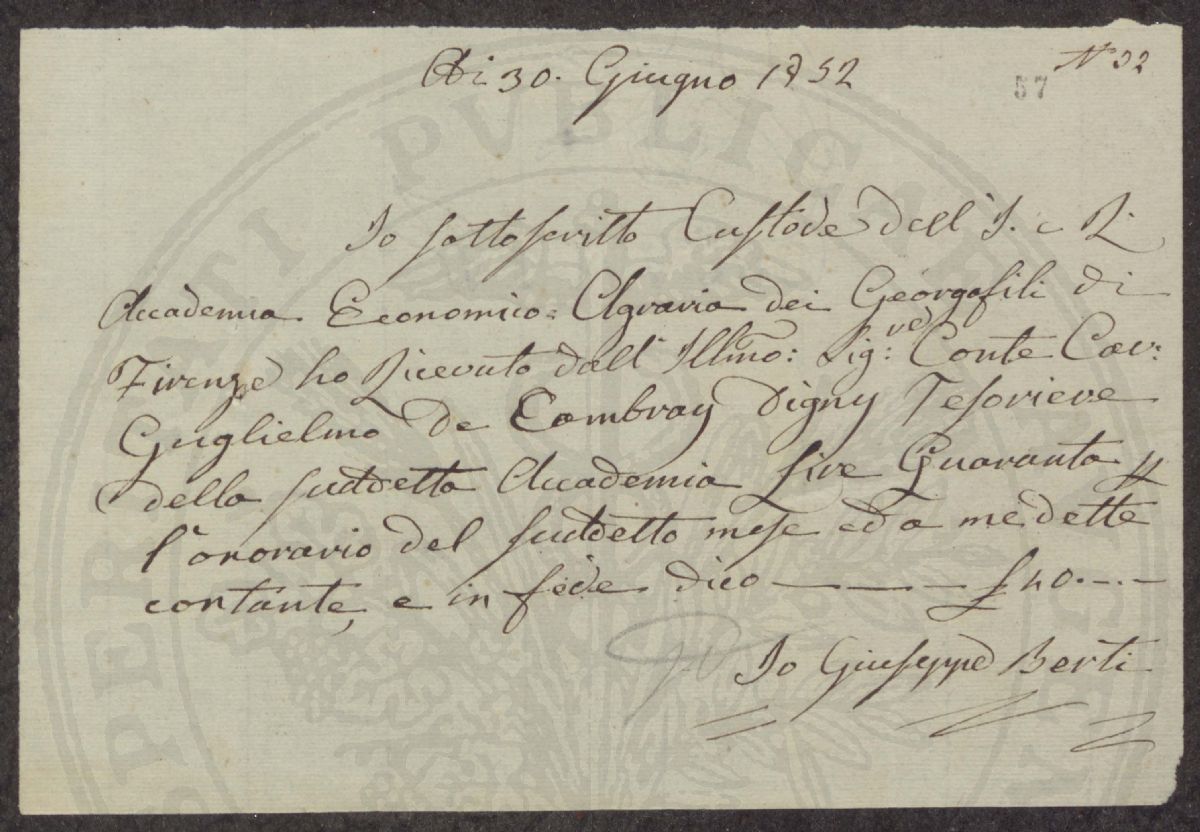 N° 32
57
Adi 30. Giugno 1852
Io sottoscritto Custode dell' I. e R.
Accademia Economico=Agraria dei Georgofili di
Firenze ho Ricevuto dall' Illmo: Sig:re Conte Cav:
Guglielmo De Cambray Digny Tesoriere
della suddetta Accademia Lire Quaranta p
l'onorario del suddetto mese ed a me dette
contante, e in fede dico ——— £ 40.--
Io Giuseppe Berti
PROSPERITATI PVBLICAE AVGENDAE